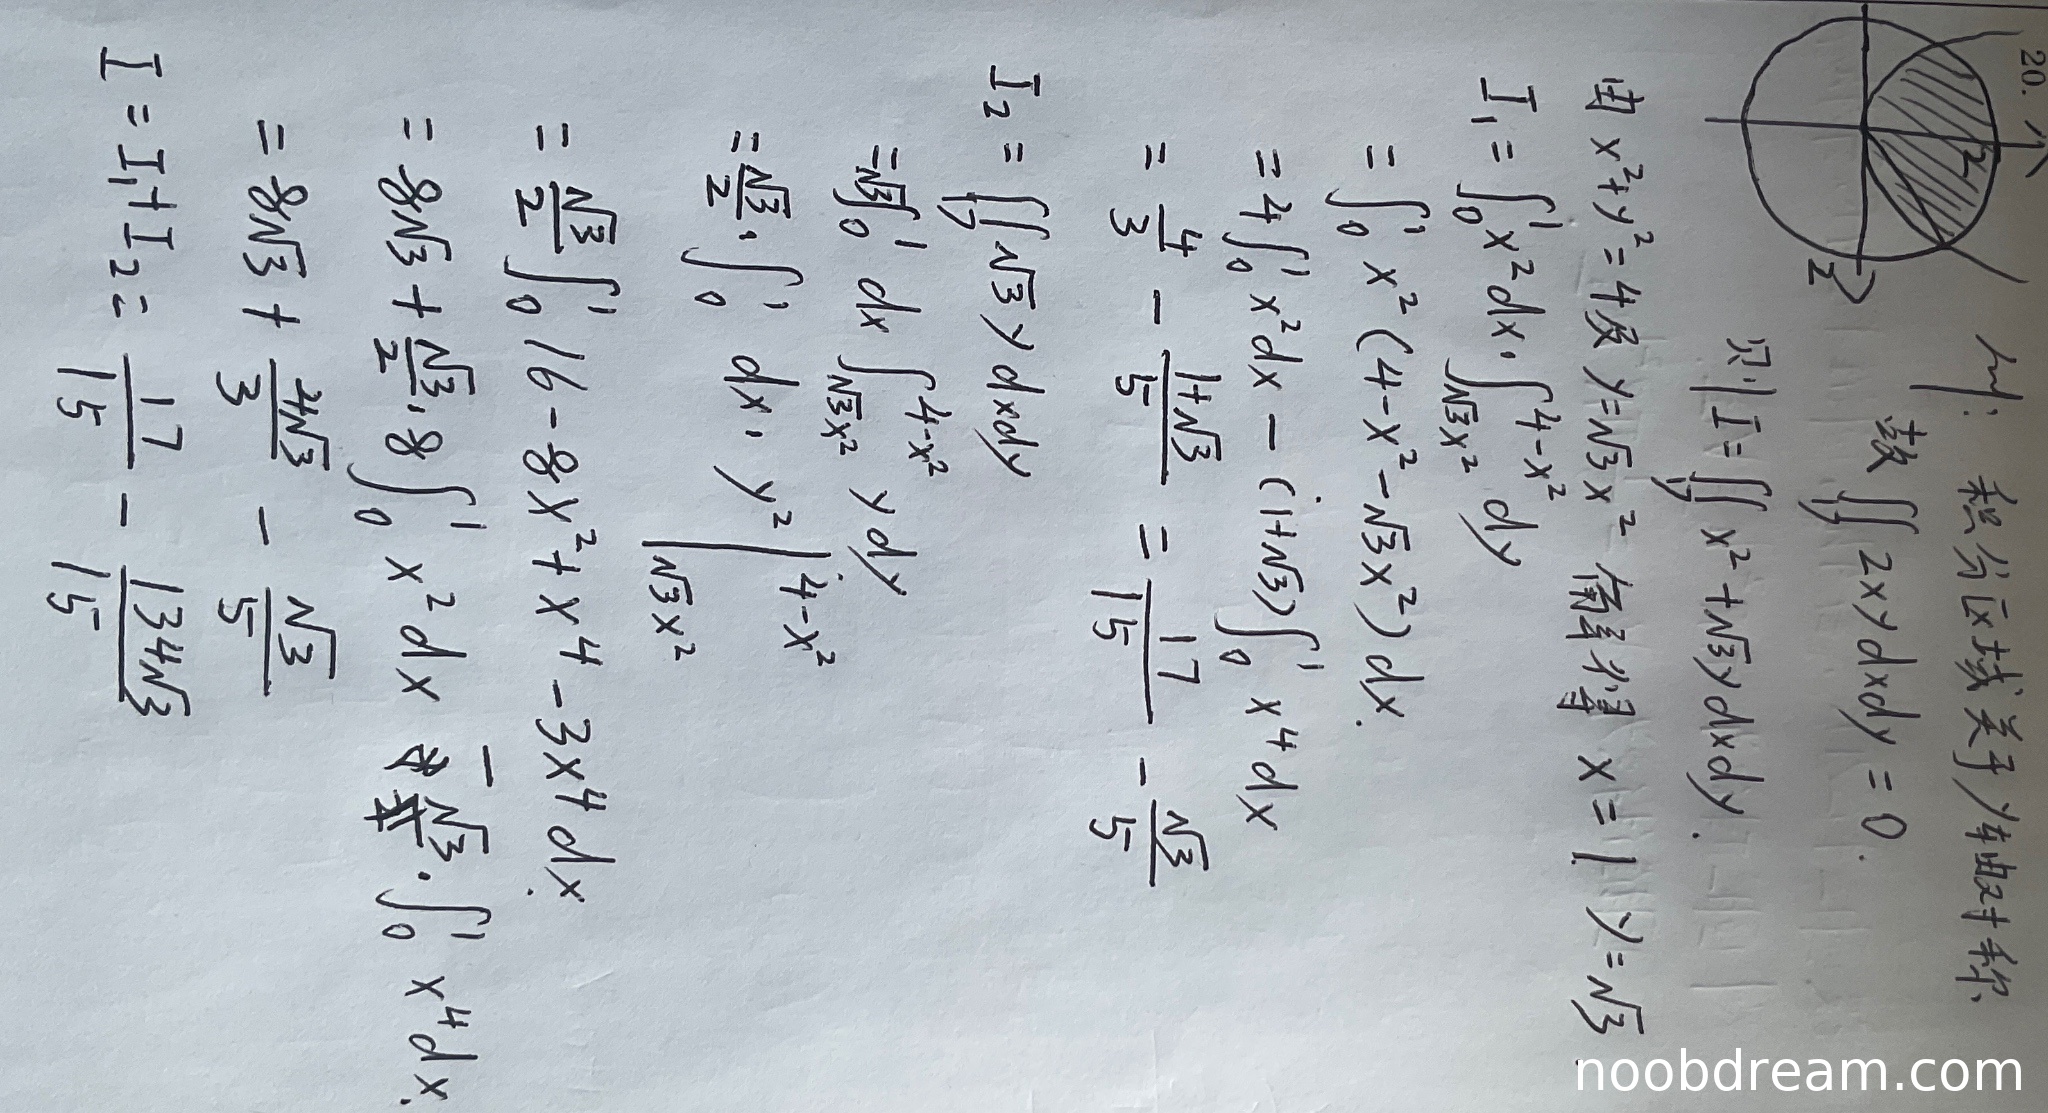 20.
2
2
解: 积分区域关于y轴对称
故 ∬_D 2xy dxdy = 0.
则 I = ∬_D x² + √3y dxdy.
由 x² + y² = 4 及 y = √3x² 解得 x = 1 y = √3.
I₁ = ∫₀¹ x² dx · ∫_{√3x²}^{4-x²} dy
= ∫₀¹ x² (4 - x² - √3x²) dx.
= 4∫₀¹ x² dx - (1+√3)∫₀¹ x⁴ dx
= 4/3 - (1+√3)/5 = 17/15 - √3/5
I₂ = ∬_D √3 y dxdy
= √3∫₀¹ dx ∫_{√3x²}^{4-x²} y dy
= √3/2 · ∫₀¹ dx · y² |_{√3x²}^{4-x²}
= √3/2 ∫₀¹ 16 - 8x² + x⁴ - 3x⁴ dx.
= 8√3 + √3/2 · 8∫₀¹ x² dx - √3 · ∫₀¹ x⁴ dx.
= 8√3 + 4√3/3 - √3/5
I = I₁ + I₂ = 17/15 - 134√3/15
noobdream.com